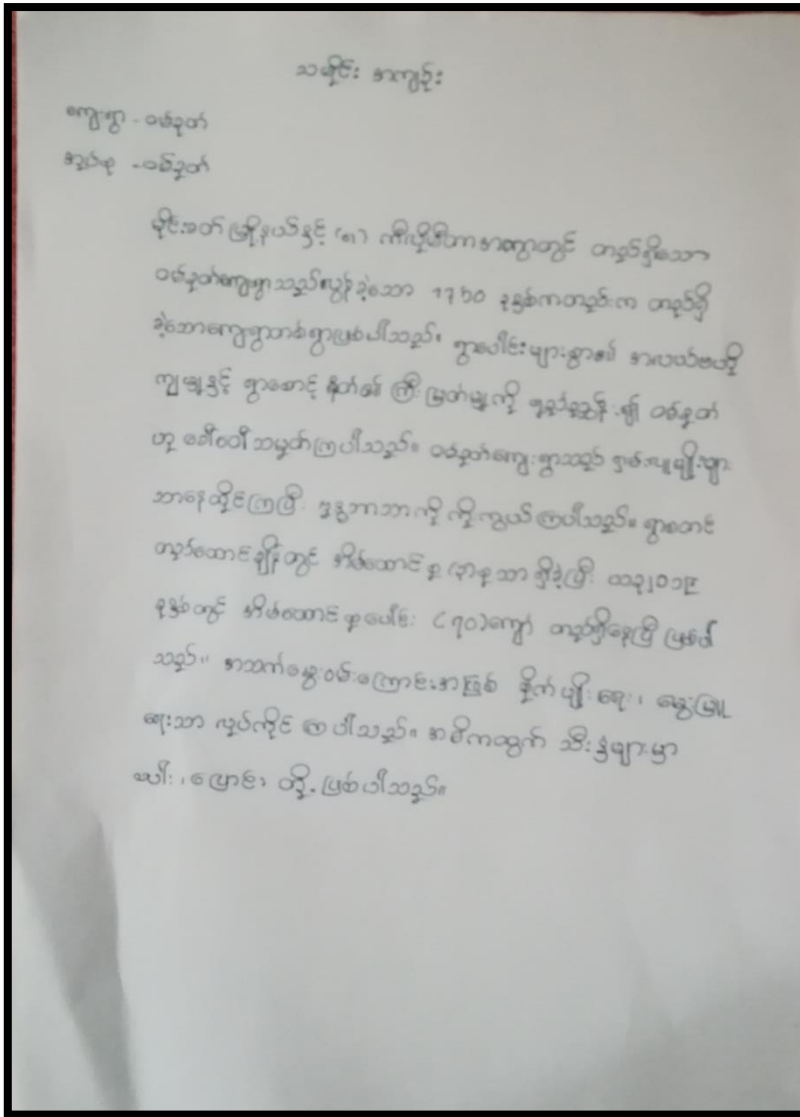 သမိုင်း အကျဉ်း
ကျေးရွာ - ဝမ်နွတ်
အုပ်စု - ဝမ်နွတ်
မိုင်းခတ် မြို့နယ်နှင့် (၈) ကီလိုမီတာအကွာတွင် တည်ရှိသော
ဝမ်နွတ်ကျေးရွာသည်လွန်ခဲ့သော 1760 ခုနှစ်ကတည်းက တည်ရှိ
ခဲ့သောကျေးရွာတစ်ရွာဖြစ်ပါသည်။ ရွာပေါင်းများစွာ၏ အလယ်ဗဟို
ကျမှုနှင့် ရွာစောင့် နတ်၏ ကြီးမြတ်မှုကို ရည်ညွှန်း၍ ဝမ်နွတ်
ဟု ခေါ်ဝေါ် သမုတ်ကြပါသည်။ ဝမ်နွတ်ကျေးရွာသည် ရှမ်းလူမျိုးများ
သာနေထိုင်ကြပြီး ဗုဒ္ဓဘာသာကို ကိုးကွယ် ကြပါသည်။ ရွာစတင်
တည်ထောင်ချိန်တွင် အိမ်ထောင်စု (၃)စုသာ ရှိခဲ့ပြီး ယခု၂၀၁၉
ခုနှစ်တွင် အိမ်ထောင်စုပေါင်း (၇၀)ကျော် တည်ရှိနေပြီ ဖြစ်ပါ
သည်။ အသက်မွေးဝမ်းကြောင်းအဖြစ် စိုက်ပျိုးရေး၊ မွေးမြူ
ရေးသာ လုပ်ကိုင် ကြပါသည်။ အဓိကထွက် သီးနှံများမှာ
စပါး၊ ပြောင်း တို့ ဖြစ်ပါသည်။